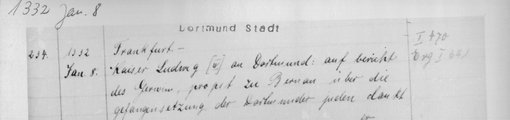 1332 Jan. 8
Dortmund Stadt
234. 1332 Frankfurt— I 470
Jan 8. Kaiser Ludwig [IV] an Dortmund: auf bericht Erg I
des Gerwin, propst zu Bernau über die
gefangensetzung der Dortmunder juden dankt